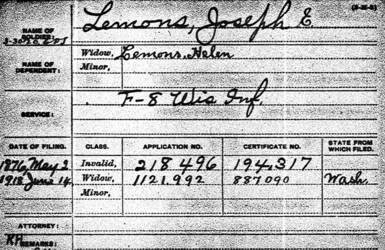 Lemons, Joseph E
(3-263)
NAME OF SOLDIER:
NAME OF DEPENDENT:
Widow, Lemons, Helen
Minor,
SERVICE:
F-8 Wis Inf.
DATE OF FILING. CLASS. APPLICATION NO. CERTIFICATE NO. STATE FROM WHICH FILED.
1876, May 2 Invalid, 218 496 194,317
1918 June 14 Widow, 1121,992 887090 Wash.
Minor,
ATTORNEY:
REMARKS: